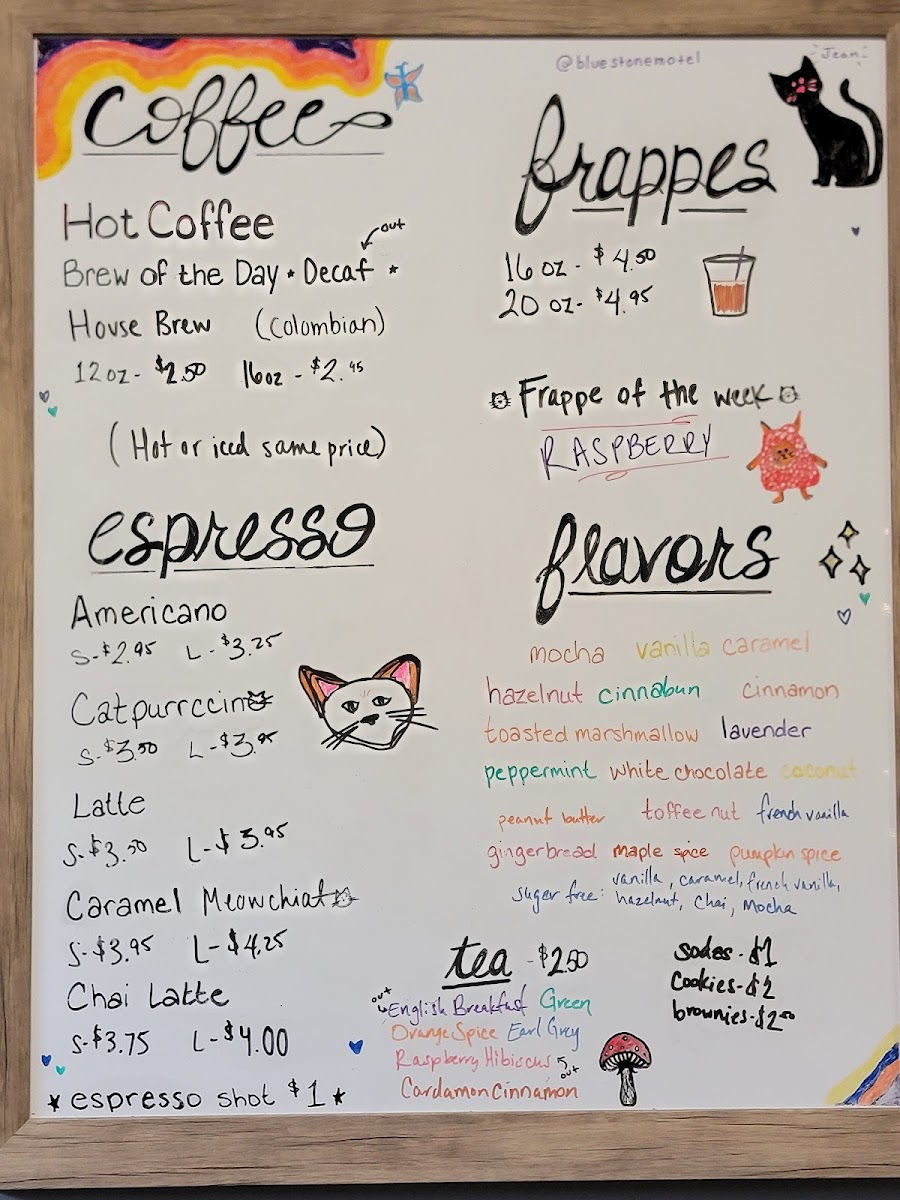 @bluestonemotel
Jean
Coffee
out
Hot Coffee
Brew of the Day • Decaf *
House Brew (Colombian)
12 oz - $2.50 16oz - $2.95
(Hot or iced same price)
espresso
Americano
S-$2.95 L-$3.25
Catpurrccino
S-$3.50 L-$3.95
Latte
S-$3.50 L-$3.95
Caramel Meowchiato
S-$3.95 L-$4.25
Chai Latte
S-$3.75 L-$4.00
* espresso shot $1 *
frappes
16 oz - $4.50
20 oz - $4.95
Frappe of the week
RASPBERRY
flavors
mocha vanilla caramel
hazelnut cinnabun cinnamon
toasted marshmallow lavender
peppermint white chocolate coconut
peanut butter toffee nut french vanilla
gingerbread maple spice pumpkin spice
suger free: vanilla, caramel, french vanilla,
hazelnut, Chai, Mocha
tea - $2.50
out
English Breakfast Green
Orange Spice Earl Grey
Raspberry Hibiscus out
Cardamon Cinnamon
sodas - $1
Cookies - $2
brownies - $2.50